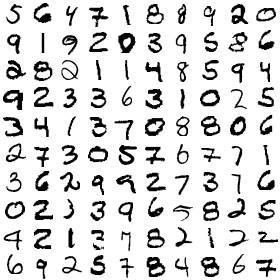 5 6 4 7 1 8 8 9 2 0
9 1 9 2 0 3 9 5 8 6
2 8 2 1 1 4 8 5 9 4
9 2 3 3 6 3 1 0 2 5
3 4 1 3 7 0 8 8 0 6
2 7 3 0 5 7 6 7 7 1
3 6 2 9 9 2 7 3 6 7
0 2 3 3 9 6 5 8 2 5
4 2 1 3 7 8 2 1 2 2
6 9 2 5 7 8 4 8 6 7